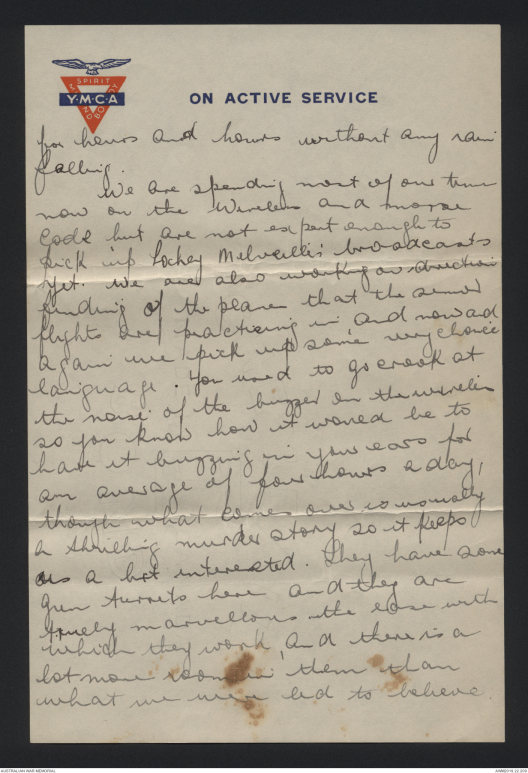 SPIRIT
MIND
BODY
Y·M·C·A
ON ACTIVE SERVICE
for hours and hours without any rain
falling.
We are spending most of our time
now on the Wireless and morse
Code but are not expert enough to
pick up Lockey Melville's broadcasts
yet. We are also working on direction
finding of the planes that the senior
flights are practising in and now and
again we pick up some very choice
language. You used to go crook at
the noise of the buzzer on the wireless
so you know how it would be to
have it buzzing in your ears for
an average of four hours a day,
though what comes over is usually
a thrilling murder story so it keeps
us a bit interested. They have some
gun turrets here and they are
truely marvellous the ease with
which they work, and there is a
lot more room in them than
what we were led to believe.
AUSTRALIAN WAR MEMORIAL